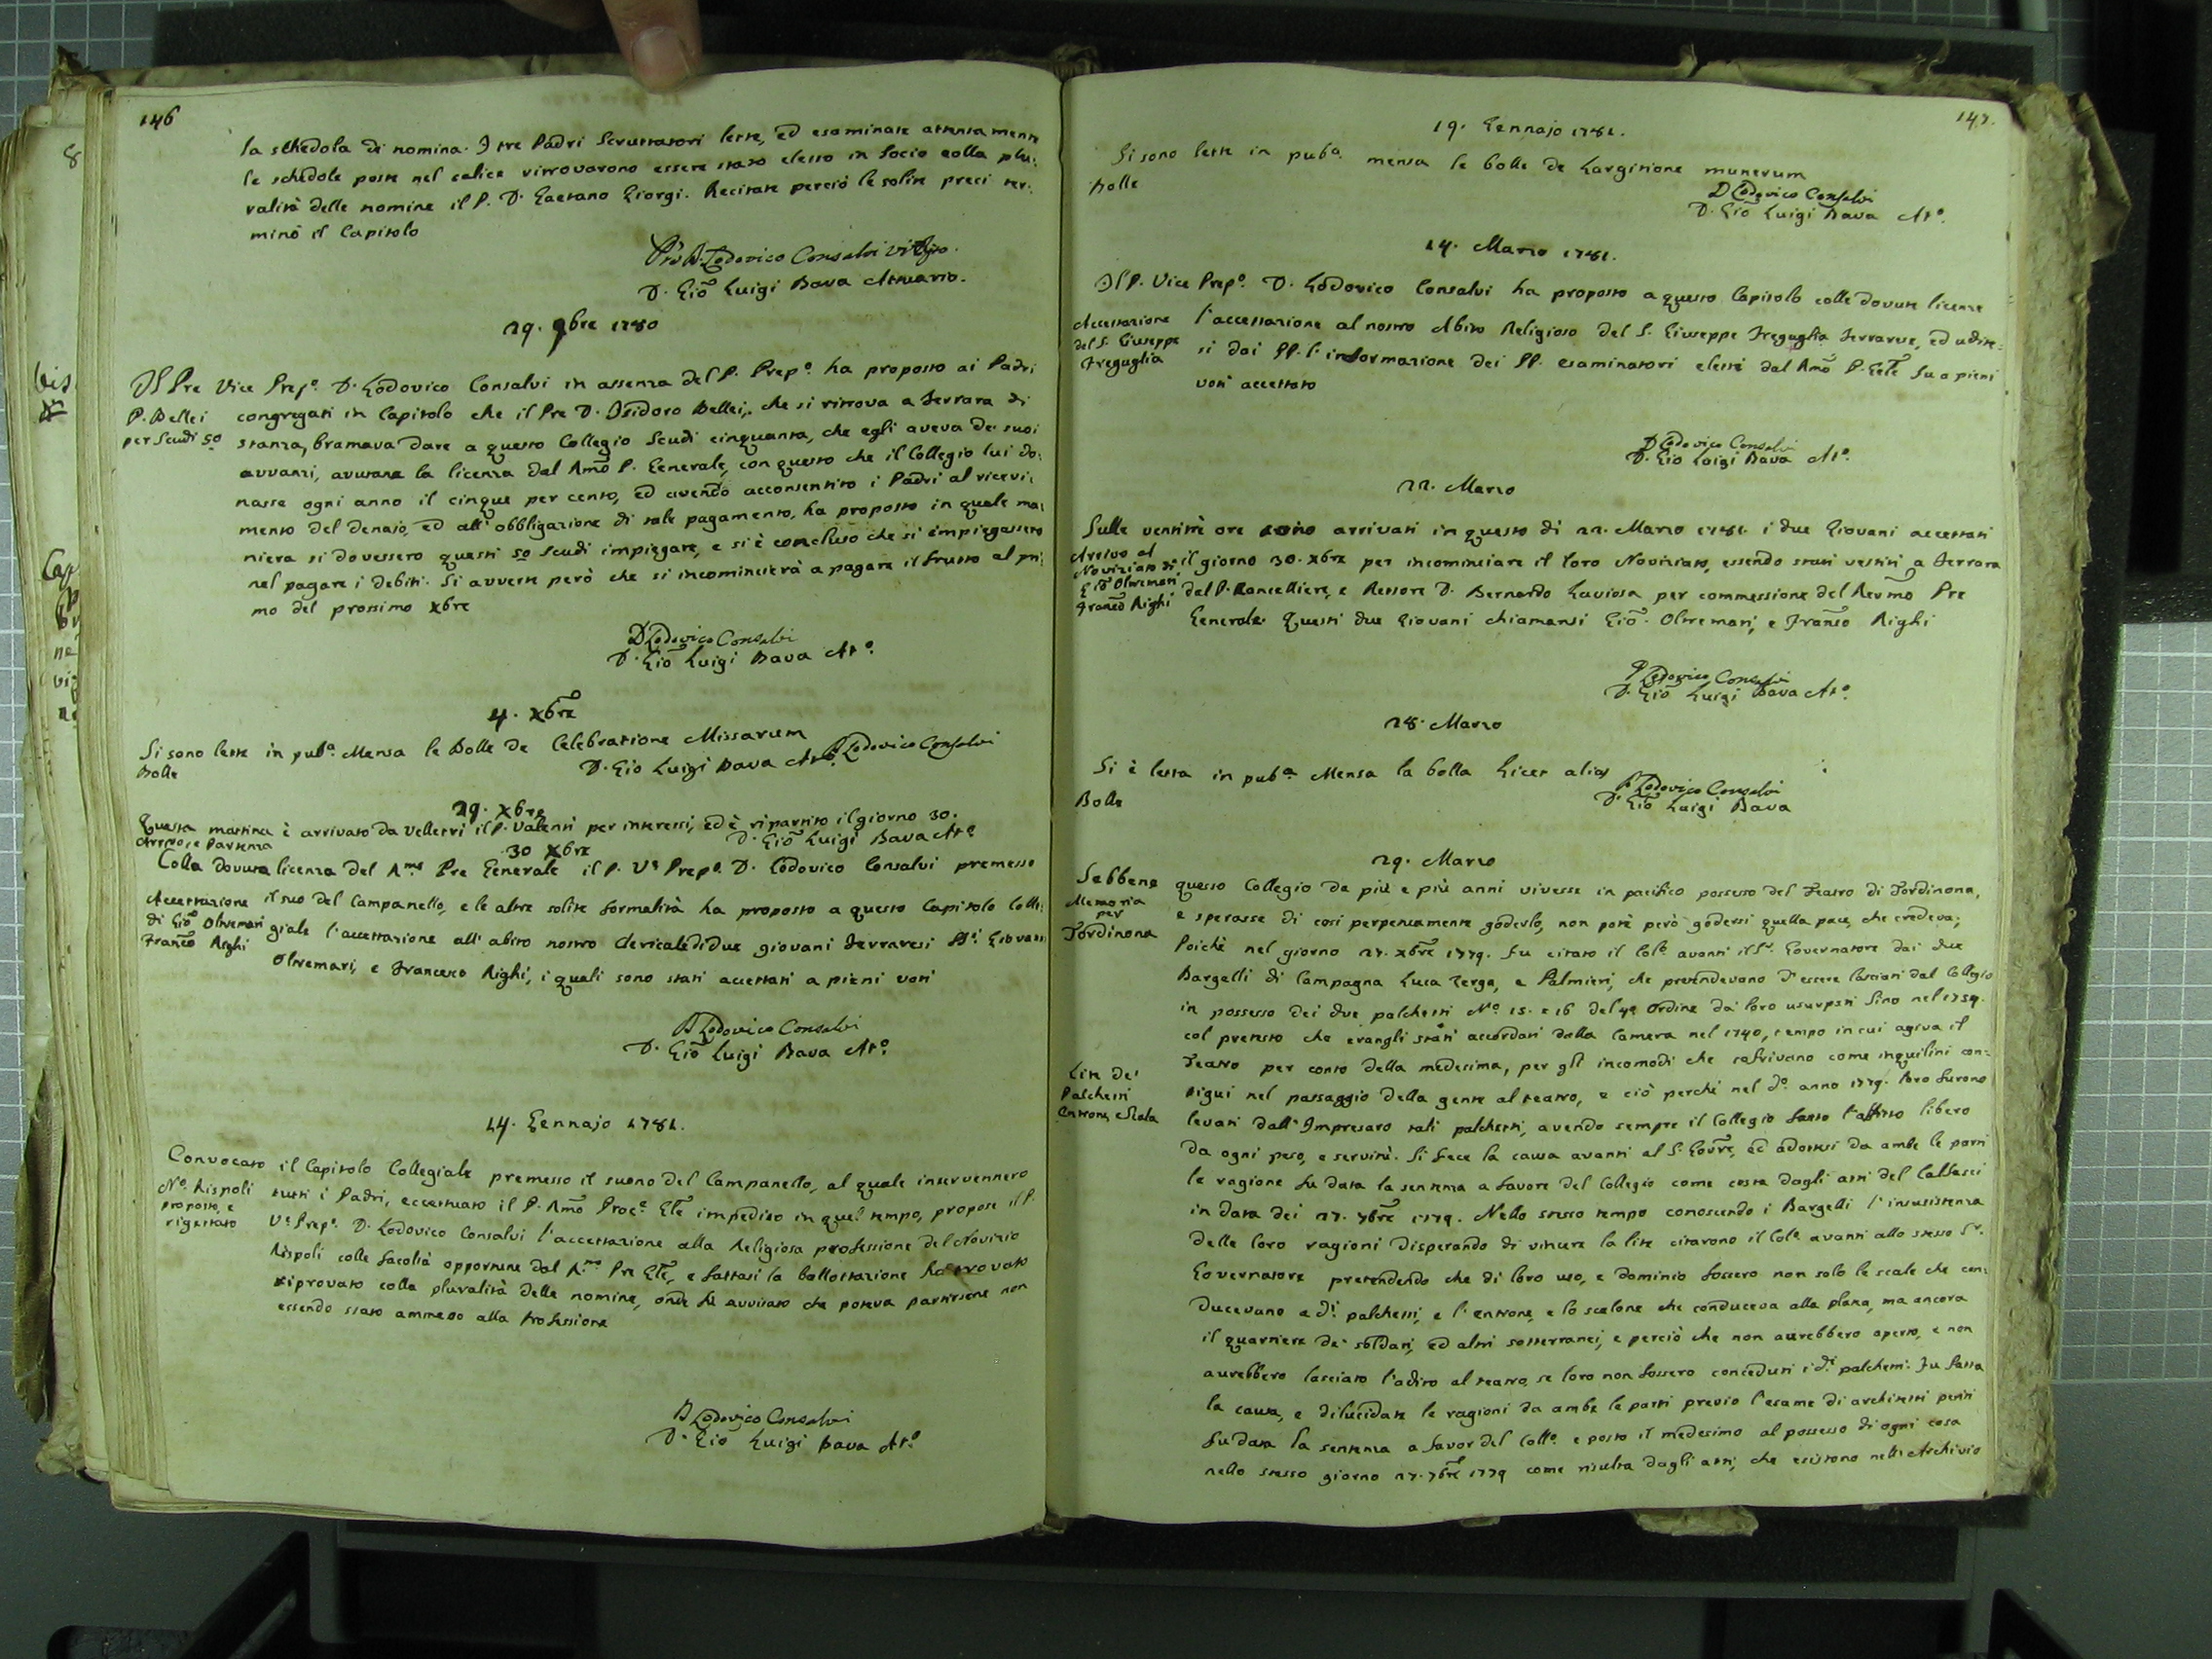 146
la schedola di nomina. I tre Padri Scrutatori lette, ed esaminate attentamente
le schedole poste nel calice ritrovarono essere stato eletto in Socio colla plu:
ralità delle nomine il P. D. Gaetano Giorgi. Recitate perciò le solite preci ter:
minò il Capitolo
D. Lodovico Consalvi
D. Gio Luigi Bava Attuario.
29. 9bre 1780
Il Pre Vice Prepo. D. Lodovico Consalvi in assenza del P. Prepo. ha proposto ai Padri
P. Bellei
per scudi 50
congregati in Capitolo che il Pre D. Isidoro Bellei, che si ritrova a Ferrara di
stanza, bramava dare a questo Collegio Scudi cinquanta, che egli aveva de suoi
avvanzi, avutane la licenza dal Rmo P. Generale, con questo che il Collegio lui do:
nasse ogni anno il cinque per cento, ed avendo acconsentito i Padri al ricevi:
mento del denajo, ed all' obbligazione di tale pagamento, ha proposto in quale ma:
niera si dovessero questi 50 scudi impiegare, e si è concluso che si impiegassero
nel pagare i debiti. Si avverte però che si incomincierà a pagare il frutto al pri:
mo del prossimo xbre
D Lodovico Consalvi
D. Gio Luigi Bava Atto.
4. xbre
Si sono lette in puba. Mensa le Bolle De Celebratione Missarum
Bolle
D. Lodovico Consalvi
D. Gio Luigi Bava Atto.
29. xbre
Questa mattina è arrivato da Velletri il P. Valenti per interessi, ed è ripartito il giorno 30.
Arrivo, e Partenza
D. Gio Luigi Bava Atto
30 xbre
Colla dovuta licenza del Rmo Pre Generale il P. Ve Prepo. D. Lodovico Consalvi premesso
Accettazione
di Gio Oltremari
Franco Righi
il suo del Campanello, e le altre solite formalità ha proposto a questo Capitolo Colle:
giale l'accettazione all' abito nostro clericale di due giovani Ferraresi Giovani
Oltremari, e Francesco Righi, i quali sono stati accettati a pieni voti
D Lodovico Consalvi
D. Gio Luigi Bava Atto.
14. Gennajo 1781.
Convocato il Capitolo Collegiale premesso il suono del Campanello, al quale intervennero
No. Rispoli
proposto, e
rigettato
tutti i Padri, eccettuato il P. Rmo Proce. Gle impedito in quel tempo, propose il P.
Ve Prepo. D. Lodovico Consalvi l'accettazione alla Religiosa professione del Novizio
Rispoli colle facoltà opportune dal Rmo Pre Gle, e fattasi la ballottazione fu trovato
riprovato colla pluralità delle nomine, onde fu avvisato che poteva partirsene non
essendo stato ammesso alla Professione
D Lodovico Consalvi
D. Gio Luigi Bava Atto.
147.
19. Gennajo 1781.
Si sono lette in puba. mensa le bolle de Largitione munerum
Bolle
D Lodovico Consalvi
D. Gio Luigi Bava Atto.
14. Marzo 1781.
Il P. Vice Prepo. D. Lodovico Consalvi ha proposto a questo Capitolo colle dovute licenze
Accettazione
del S. Giuseppe
Freguglia
l'accettazione al nostro Abito Religioso del S. Giuseppe Freguglia Ferrarese, ed udite:
si dai PP. l'informazione dei PP. esaminatori eletti dal Rmo P. Gele fu a pieni
voti accettato
D Lodovico Consalvi
D. Gio Luigi Bava Atto.
22. Marzo
Sulle ventitrè ore sono arrivati in questo dì 22. Marzo 1781. i due Giovani accettati
Arrivo al
Noviziato di
Gio Oltremari
Franco Righi
il giorno 30. xbre per incominciare il loro Noviziato, essendo stati vestiti a Ferrara
dal P. Cancelliere, e Rettore D. Bernardo Laviosa per commessione del Revmo Pre
Generale. Questi due Giovani chiamansi Gio. Oltremari, e Franco Righi
D Lodovico Consalvi
D. Gio Luigi Bava Atto.
28. Marzo
Si è letta in puba Mensa la bolla Licet alias
Bolla
D Lodovico Consalvi
D. Gio Luigi Bava
29. Marzo
Sebbene questo Collegio da più e più anni vivesse in pacifico possesso del Teatro di Tordinona,
Memoria
per
Tordinona
e sperasse di così perpetuamente goderlo, non potè però godersi quella pace, che credeva;
Poichè nel giorno 27. xbre 1779. fu citato il Colo. avanti il Sr. Governatore dai due
Bargelli di Campagna Luca Zerga, e Palmieri, che pretendevano d'essere lasciati dal Collegio
in possesso dei due palchetti No. 15. e 16 del 4o Ordine da loro usurpati sino nel 1759.
col pretesto che erangli stati accordati dalla Camera nel 1740, tempo in cui agiva il
Teatro per conto della medesima, per gli incomodi che soffrivano come inquilini con:
Lite de'
Palchetti
Entrone, e Scala
tigui nel passaggio della gente al teatro, e ciò perchè nel do. anno 1779. loro furono
levati dall' Impresaro tali palchetti, avendo sempre il Collegio fatto l'affitto libero
da ogni peso, e servitù. Si fece la causa avanti al S. Govre, ed adottesi da ambe le parti
le ragione fu data la sentenza a favore del Collegio come costa dagli atti del Calsasci
in data dei 27. 7bre 1779. Nello stesso tempo conoscendo i Bargelli l'insussistenza
delle loro ragioni disperando di vincere la lite citarono il Colo avanti allo stesso Sr.
Governatore pretendendo che di loro uso, e dominio fossero non solo le scale che con:
ducevano a di. palchetti, e l'entrone, e lo scalone che conduceva alla platea, ma ancora
il quartiere de' soldati, ed altri sotterranei, e perciò che non aurebbero aperto, e non
aurebbero lasciato l'adito al teatro, se loro non fossero conceduti i di. palchetti. Fu fatta
la causa, e dilucidate le ragioni da ambe le parti previo l'esame di architetti periti
fu data la sentenza a favor del Collo. e posto il medesimo al possesso di ogni cosa
nello stesso giorno 27. 7bre 1779 come risulta dagli atti, che esistono nell' Archivio